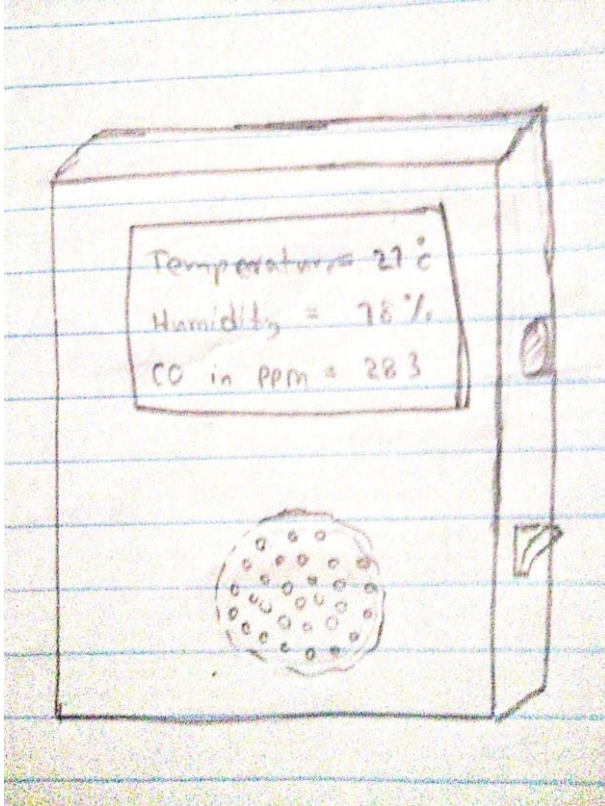 Temperature = 27°C
Humidity = 78 %
CO in ppm = 283